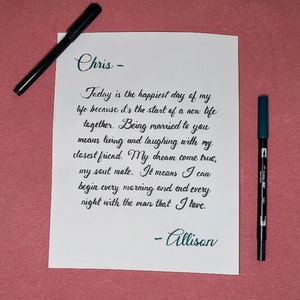 Chris –
Today is the happiest day of my
life because it's the start of a new life
together. Being married to you
means living and laughing with my
closest friend. My dream come true,
my soul mate. It means I can
begin every morning and end every
night with the man that I love.
– Allison